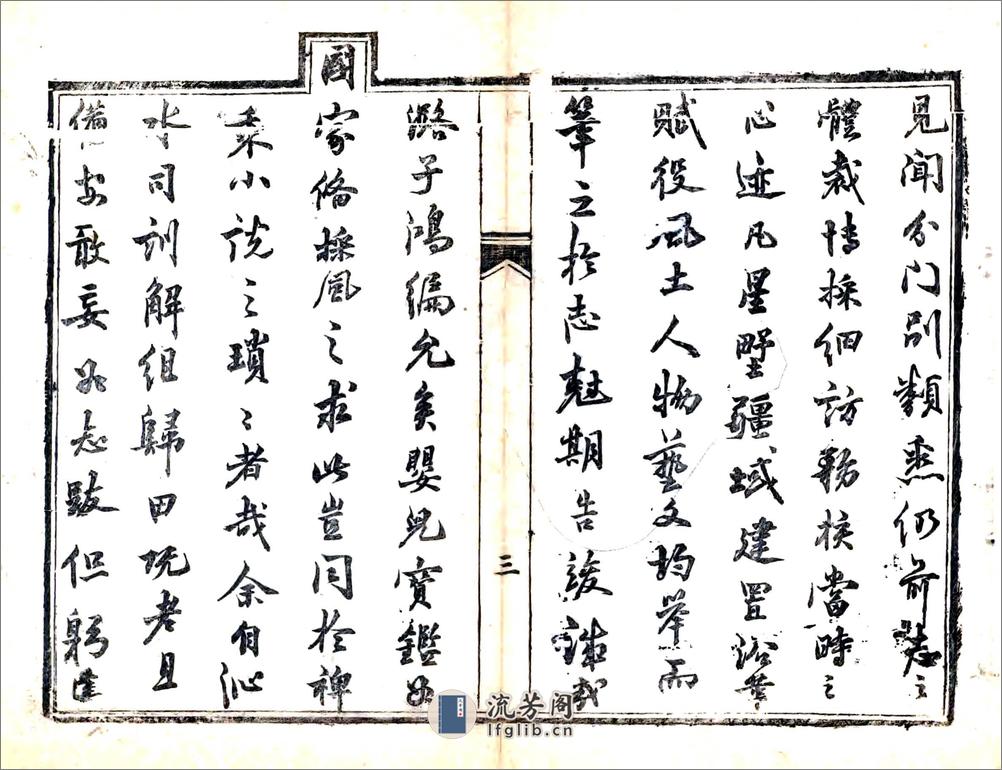 見聞分門別類悉仍前志之
體裁博採細訪務核當時之
心迹凡星野疆域建置沿革
賦役風土人物藝文均舉而
筆之於志尅期告竣誠哉
三
潞子鴻編允矣嬰兒寶鑑
國家備採風之求此豈同於稗
乘小說之瑣〻者哉余自沁
水司訓解組歸田既老且
憊安敢妄為志跋但躬逢
流芳阁
lfglib.cn